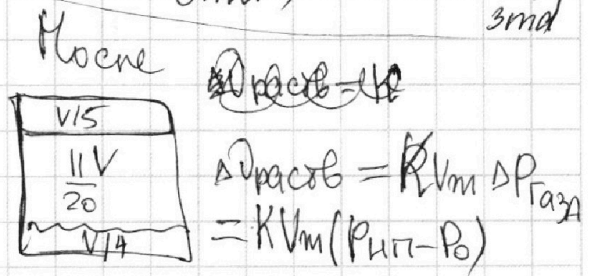 3md
После
V/5
11V
20
V/4
Δνраств = KVm ΔPгаза
= KVm(Pнп-P₀)